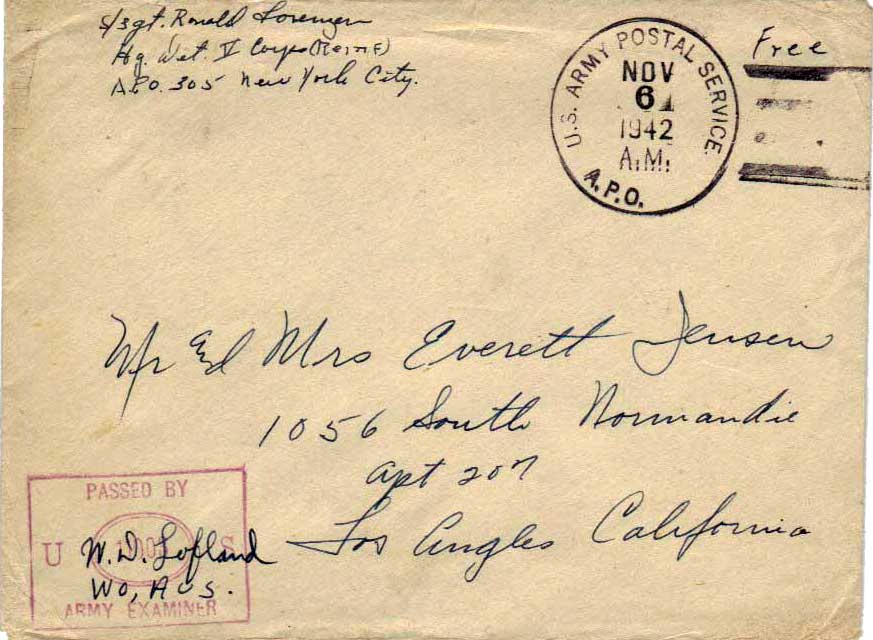 S/Sgt. Ronald
Hq. Det. II Corps (Reinf)
A.P.O. 305 New York City.
U.S. ARMY POSTAL SERVICE
NOV
6
1942
A.M.
A.P.O.
Free
Mr Ed Mrs Everett Jensen
1056 South Normandie
apt 207
Los Angles California
PASSED BY
U S
W. D. Lofland
WO, AUS.
ARMY EXAMINER